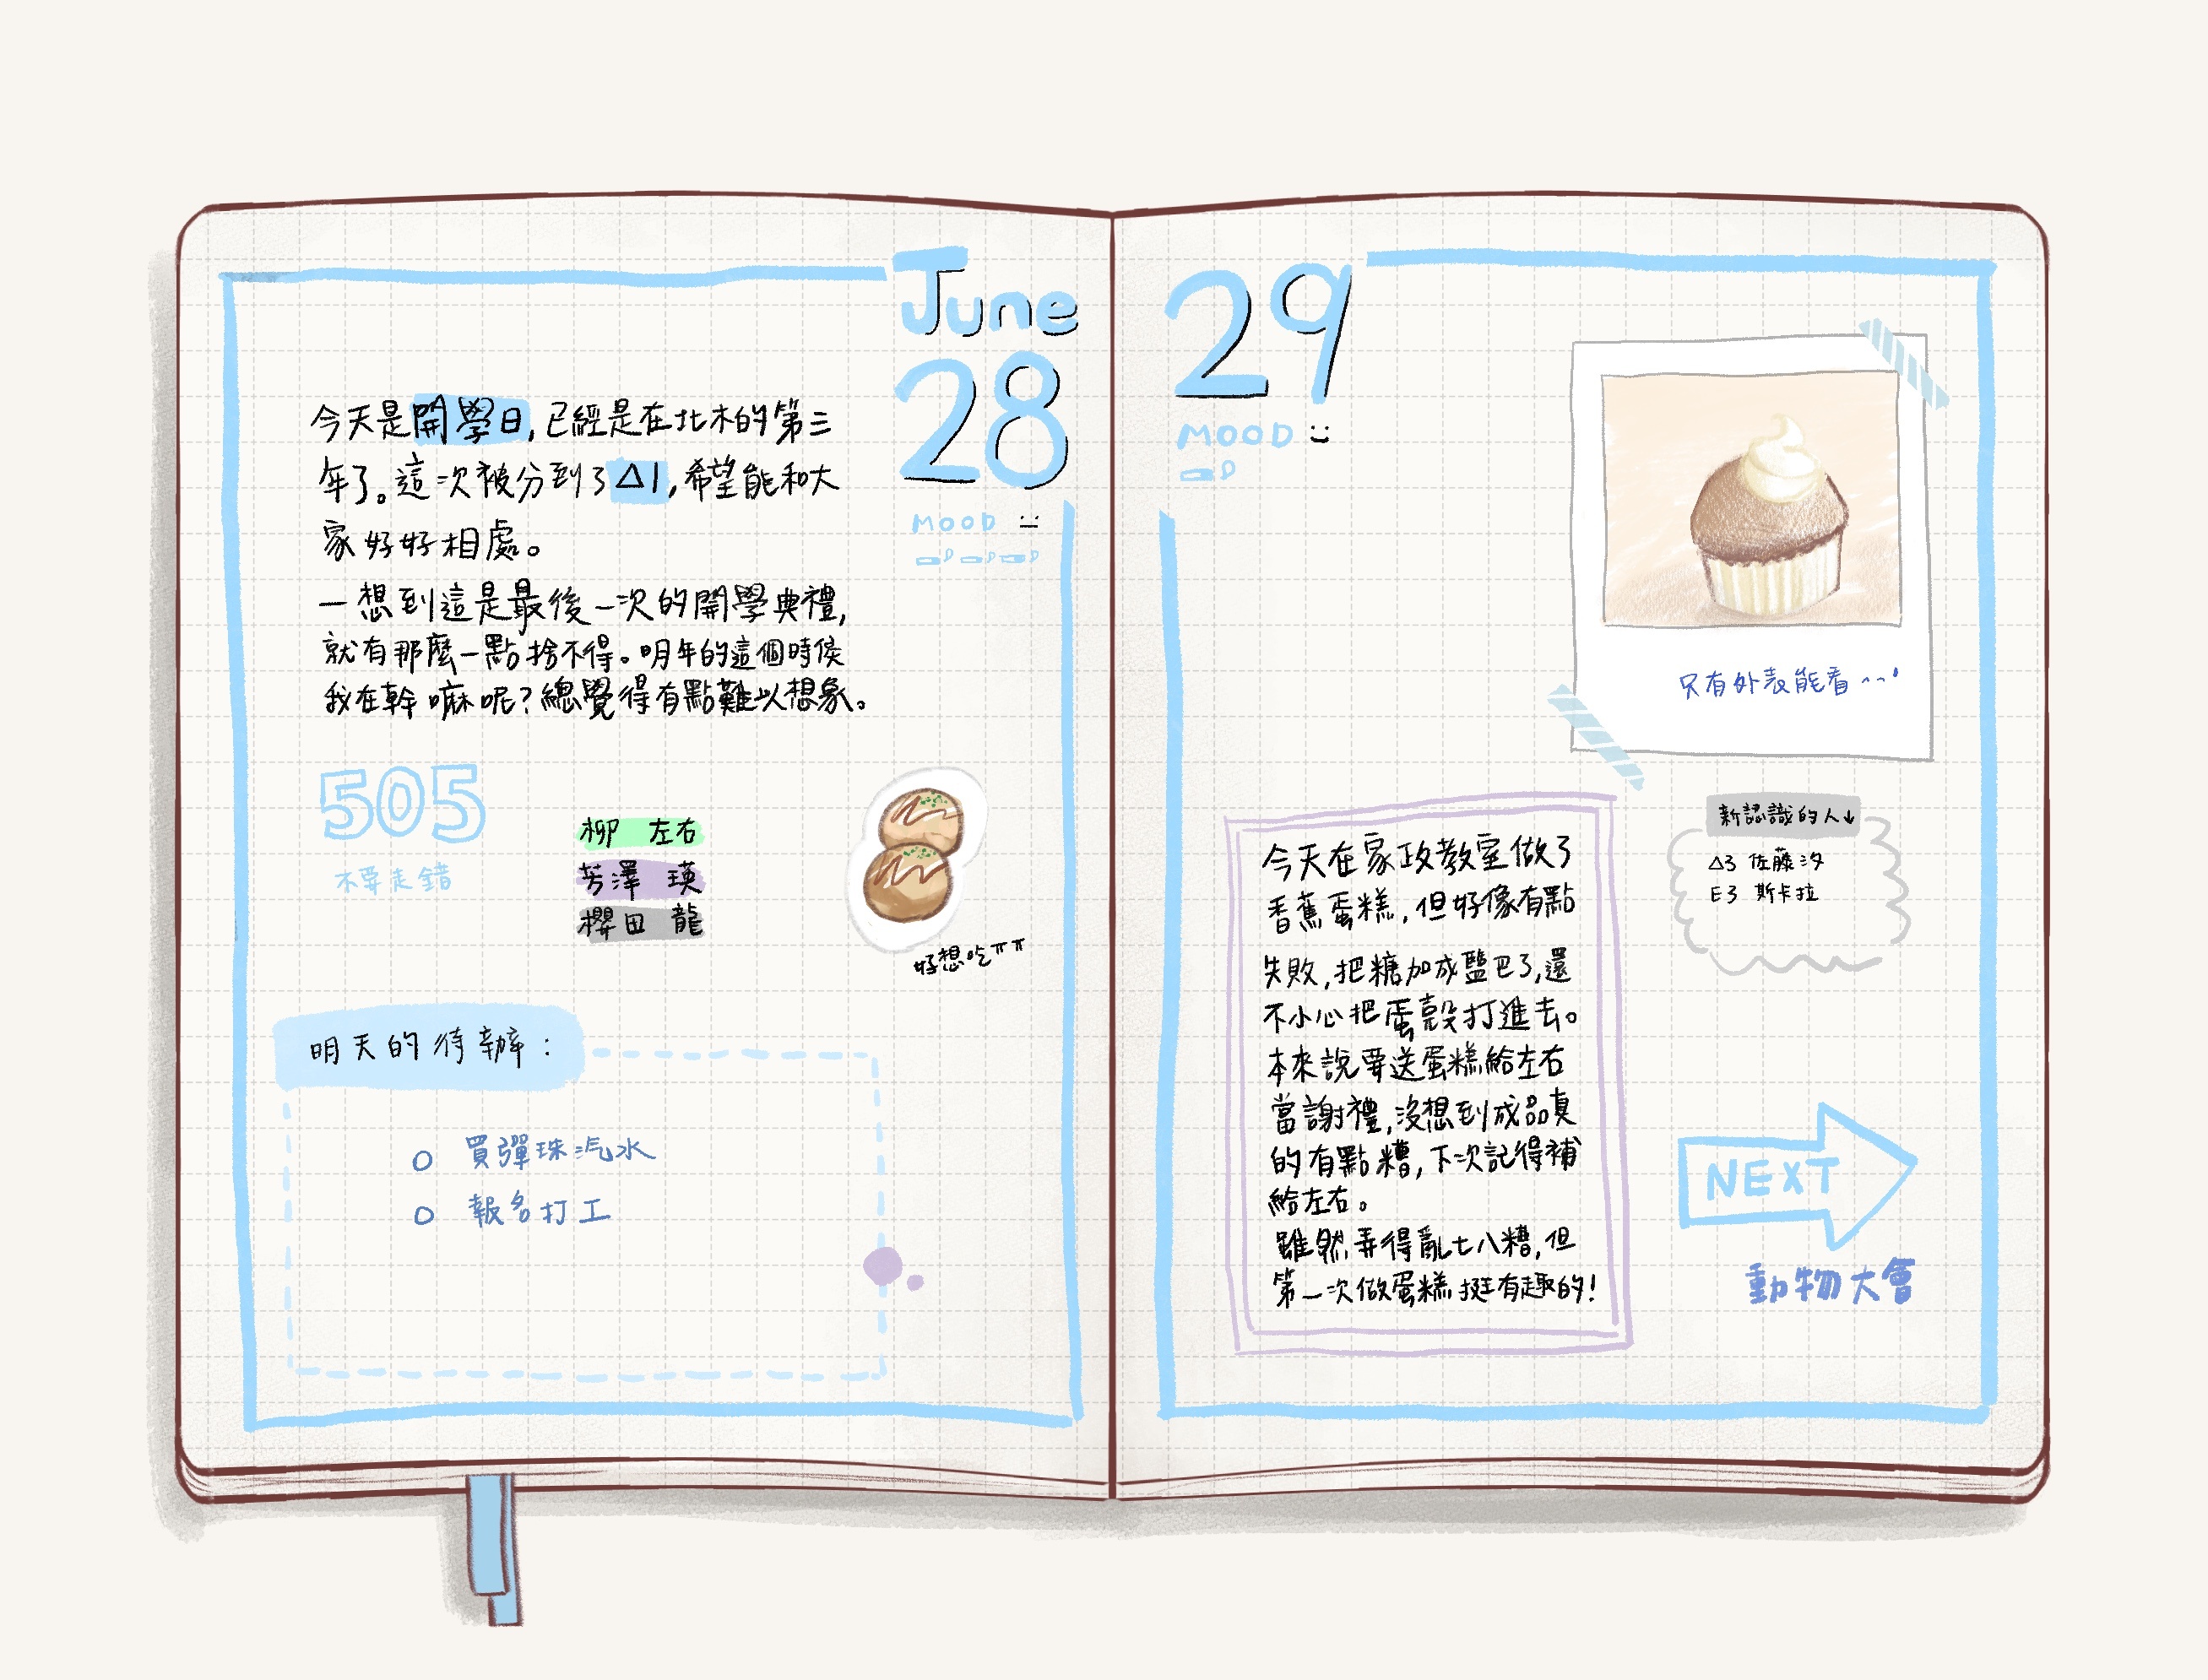 June
28
MOOD
今天是開學日,已經是在北木的第三
年了。這次被分到了△1,希望能和大
家好好相處。
一想到這是最後一次的開學典禮,
就有那麼一點捨不得。明年的這個時侯
我在幹嘛呢?總覺得有點難以想象。
505
不要走錯
柳 左右
芳澤 瑛
櫻田 龍
好想吃ㅠㅠ
明天的待辦:
○ 買彈珠汽水
○ 報名打工
29
MOOD
只有外表能看~~'
新認識的人↓
△3 佐藤汐
E3 斯卡拉
今天在家政教室做了
香蕉蛋糕,但好像有點
失敗,把糖加成鹽巴了,還
不小心把蛋殼打進去。
本來說要送蛋糕給左右
當謝禮,沒想到成品真
的有點糟,下次記得補
給左右。
雖然弄得亂七八糟,但
第一次做蛋糕挺有趣的!
NEXT
動物大會